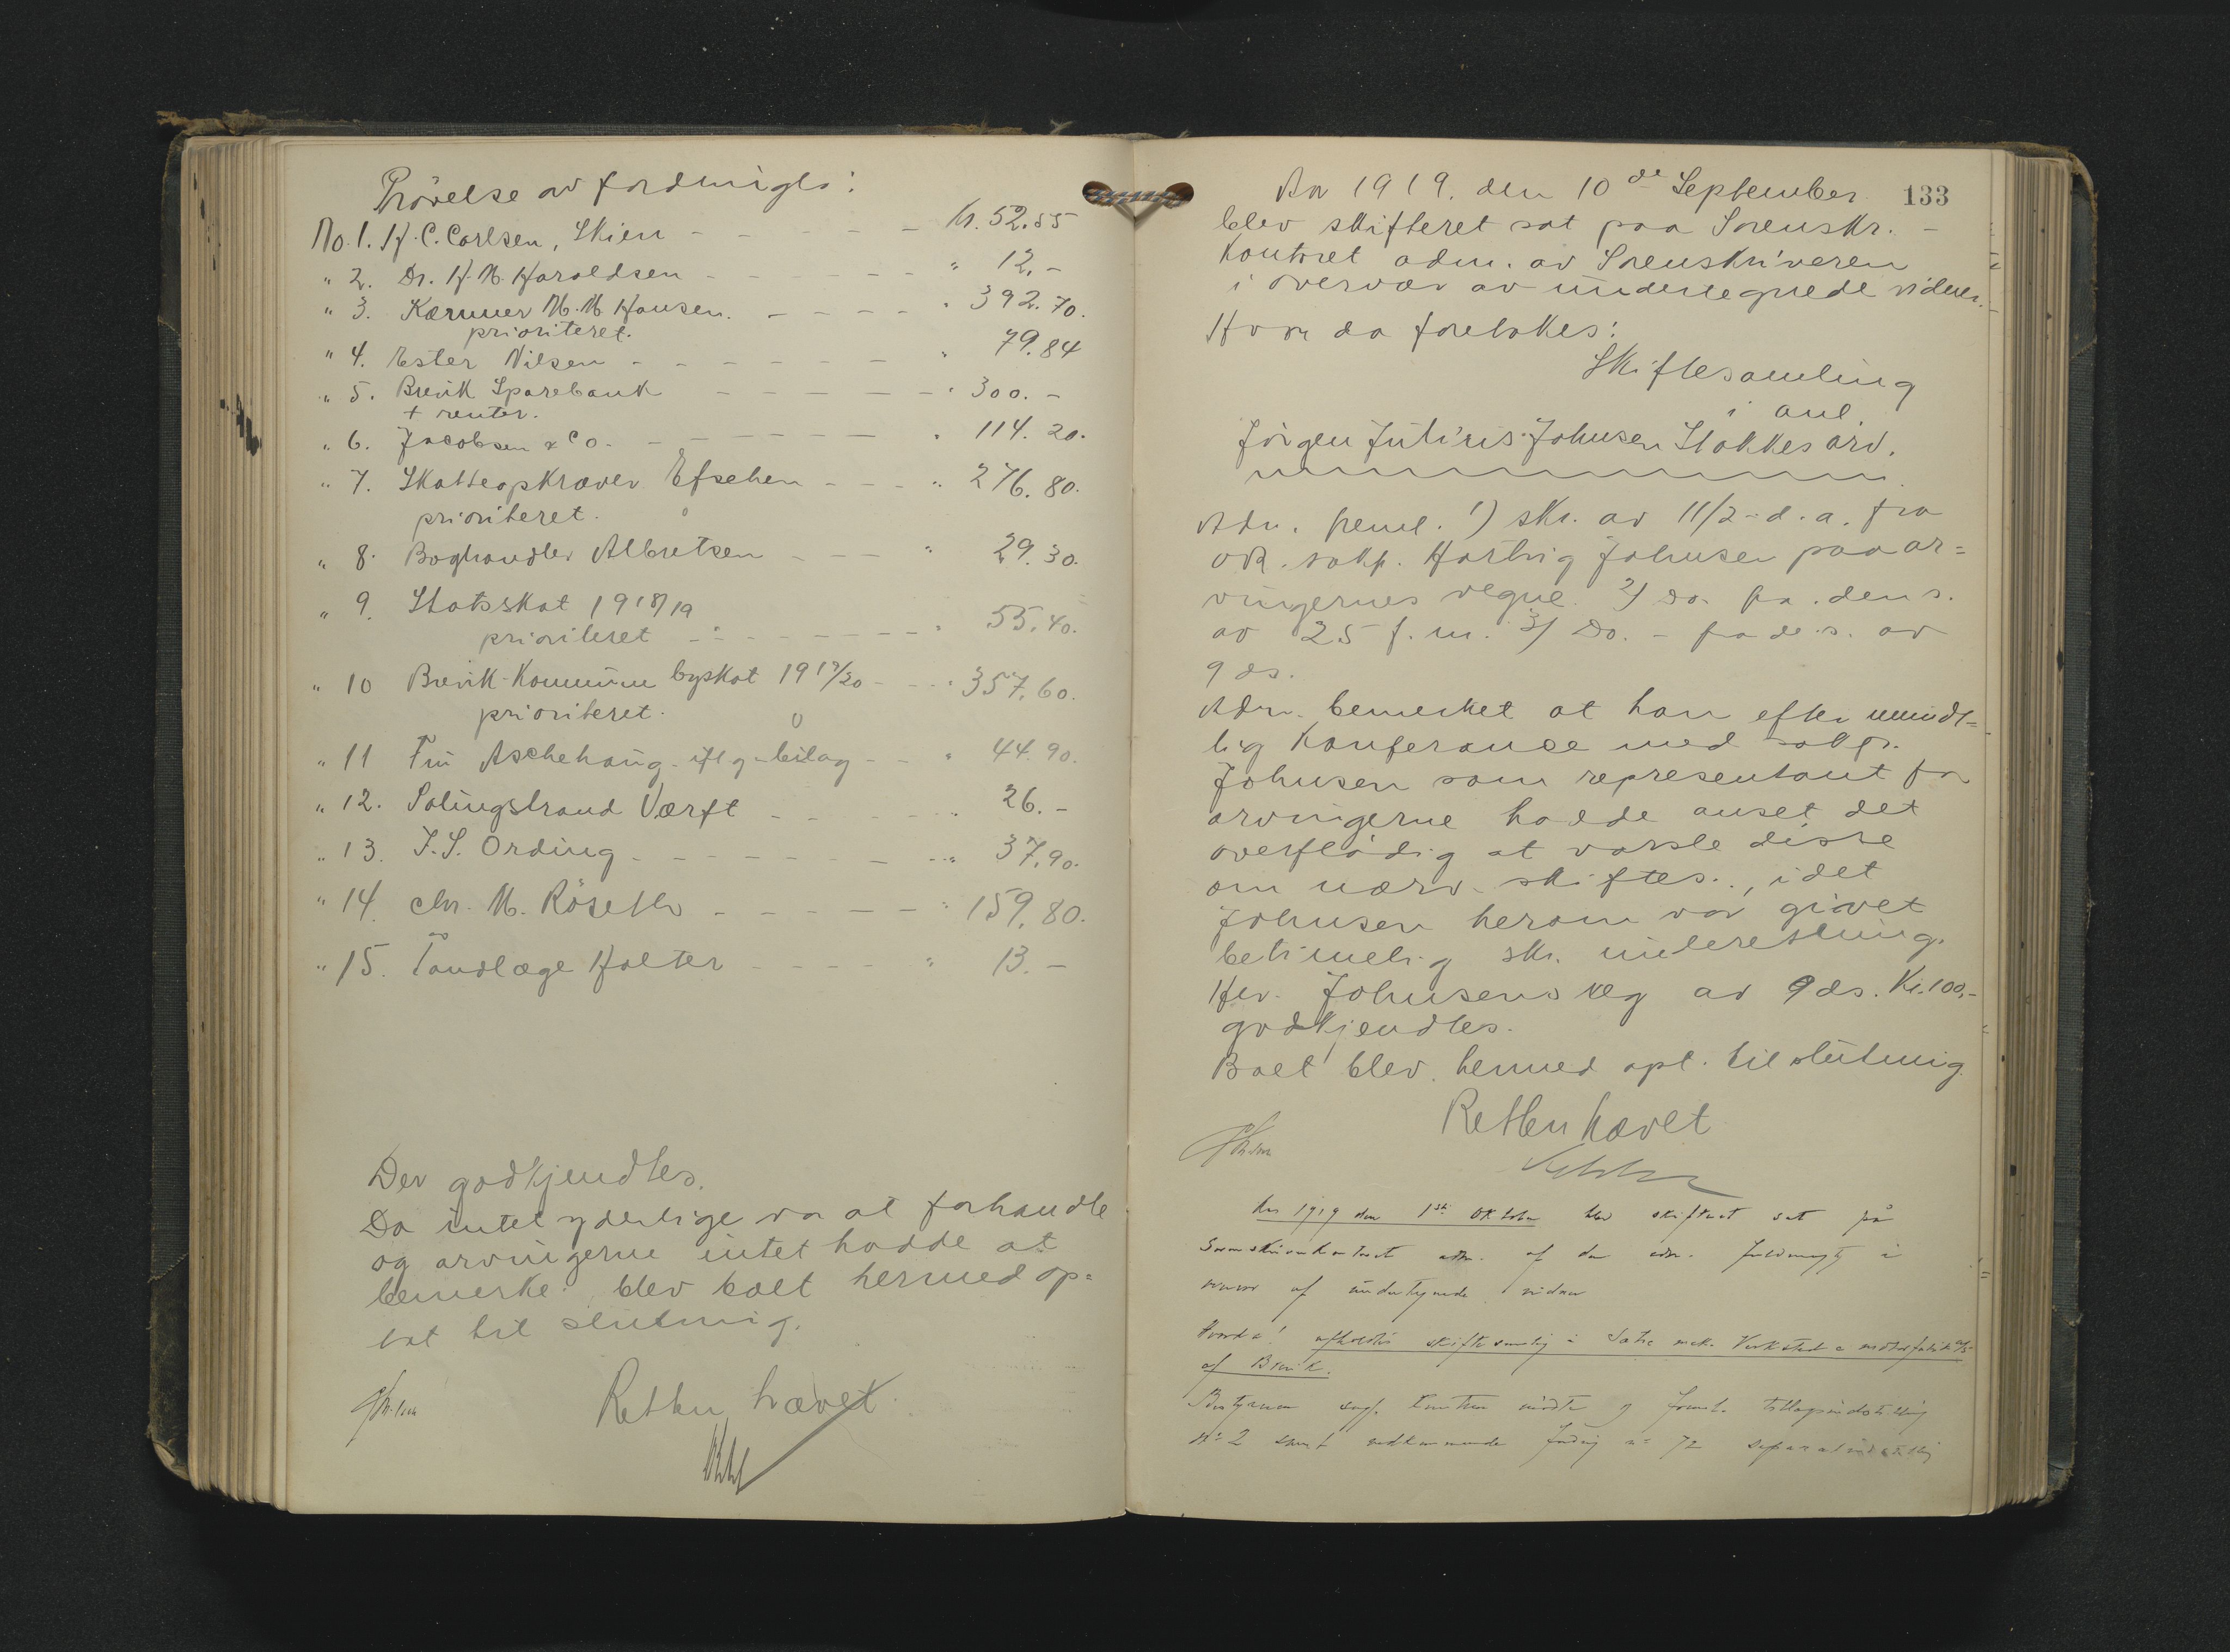 Prövelse av fordringer:
No. 1. H. C. Carlsen, Skien - - - - - Kr. 52.55
" 2. Dr. H. M. Haroldsen - - - - - " 12.-
" 3. Kæmner M. M. Hansen. - - - - " 392.70.
prioriteret.
" 4. Ester Nilsen - - - - - - " 79.84
" 5. Brevik Sparebank - - - - - " 300.-
+ renter.
" 6. Jacobsen & Co. - - - - - - " 114.20.
" 7. Skatteopkræver - - - " 276.80.
prioriteret.
" 8. Boghandler Albretsen - - - " 29.30.
" 9. Statsskat 1918/19
prioriteret - - - - - - - " 55.40.
" 10 Brevik Kommune byskat 1919/20 - - - " 357.60.
prioriteret.
" 11 Aschehoug - bilag - - " 44.90.
" 12. Værft - - - - - " 26.-
" 13. J. S. Ording - - - - - - - - " 37.90.
" 14. Chr. M. Röseth - - - - - " 159.80.
" 15. Tandlæge Holter - - - - " 13.-
Der godkjendtes.
Da intet yderlige var at forhandle
og arvingerne intet hadde at
bemerke blev boet hermed op=
tat til slutning.
Retten hævet
133
Aar 1919. den 10de September
blev skifteret sat paa Sorenskr.-
Kontoret adm. av Sorenskriveren
i overvær av undertegnede vidner.
Hvor da foretokes:
Skiftesamling
i anl.
Jörgen Julius Johnsen Stokkes arv.
Adm. freml. 1) skr. av 11/2 d. a. fra
o.r. sakf. Hartvig Johnsen paa ar=
vingernes vegne. 2) Do. fra den s.
av 25 f. m. 3) Do. - fra d. s. av
9 ds.
Adm. bemerket at han efter mundt=
lig Konferanse med sakf.
Johnsen som representant for
arvingerne hadde anset det
overflödig at varsle disse
om nærv. skiftes., idet
Johnsen herom var givet
betimelig skr. underretning.
Hr. Johnsens reg av 9 ds. Kr. 100,-
godkjendtes.
Boet blev hermed opt. til slutning.
Retten hævet
Aar 1919 den 1ste Oktober blev skifteret sat på
Sorenskriverkontoret adm. af den edsv. fuldmægtig i
overvær af undertegnede vidner
Hvorda! afholdtes skiftesamling i Sætre mek. Verksted & motorfabrik A/S
af Brevik.
Bestyreren sagf. mödte og freml. tillægsindstilling
No 2 samt vedkommende fordring No 72 separatindstilling